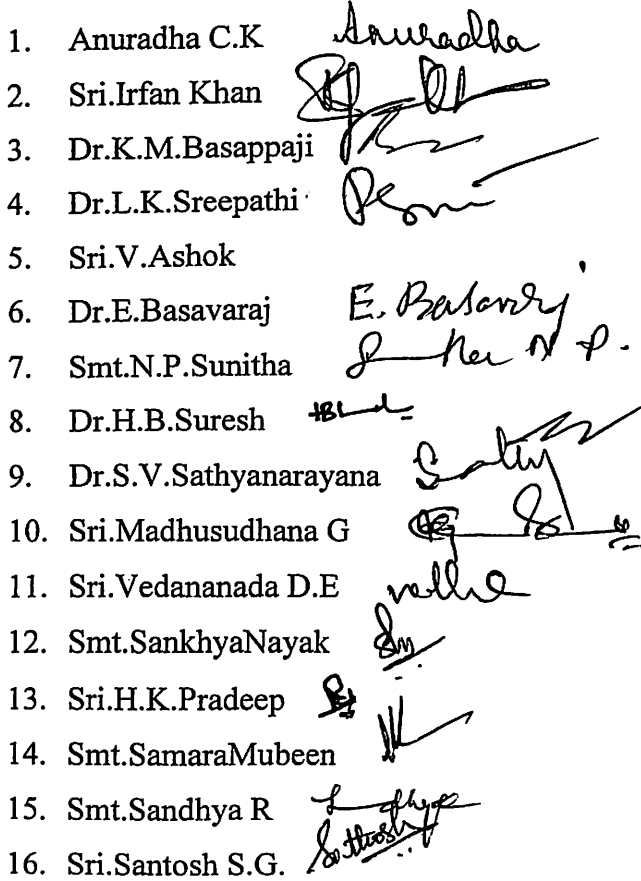 1. Anuradha C.K Anuradha
2. Sri.Irfan Khan
3. Dr.K.M.Basappaji
4. Dr.L.K.Sreepathi
5. Sri.V.Ashok
6. Dr.E.Basavaraj E. Basavaraj
7. Smt.N.P.Sunitha N P.
8. Dr.H.B.Suresh
9. Dr.S.V.Sathyanarayana
10. Sri.Madhusudhana G
11. Sri.Vedananada D.E
12. Smt.SankhyaNayak
13. Sri.H.K.Pradeep
14. Smt.SamaraMubeen
15. Smt.Sandhya R
16. Sri.Santosh S.G.